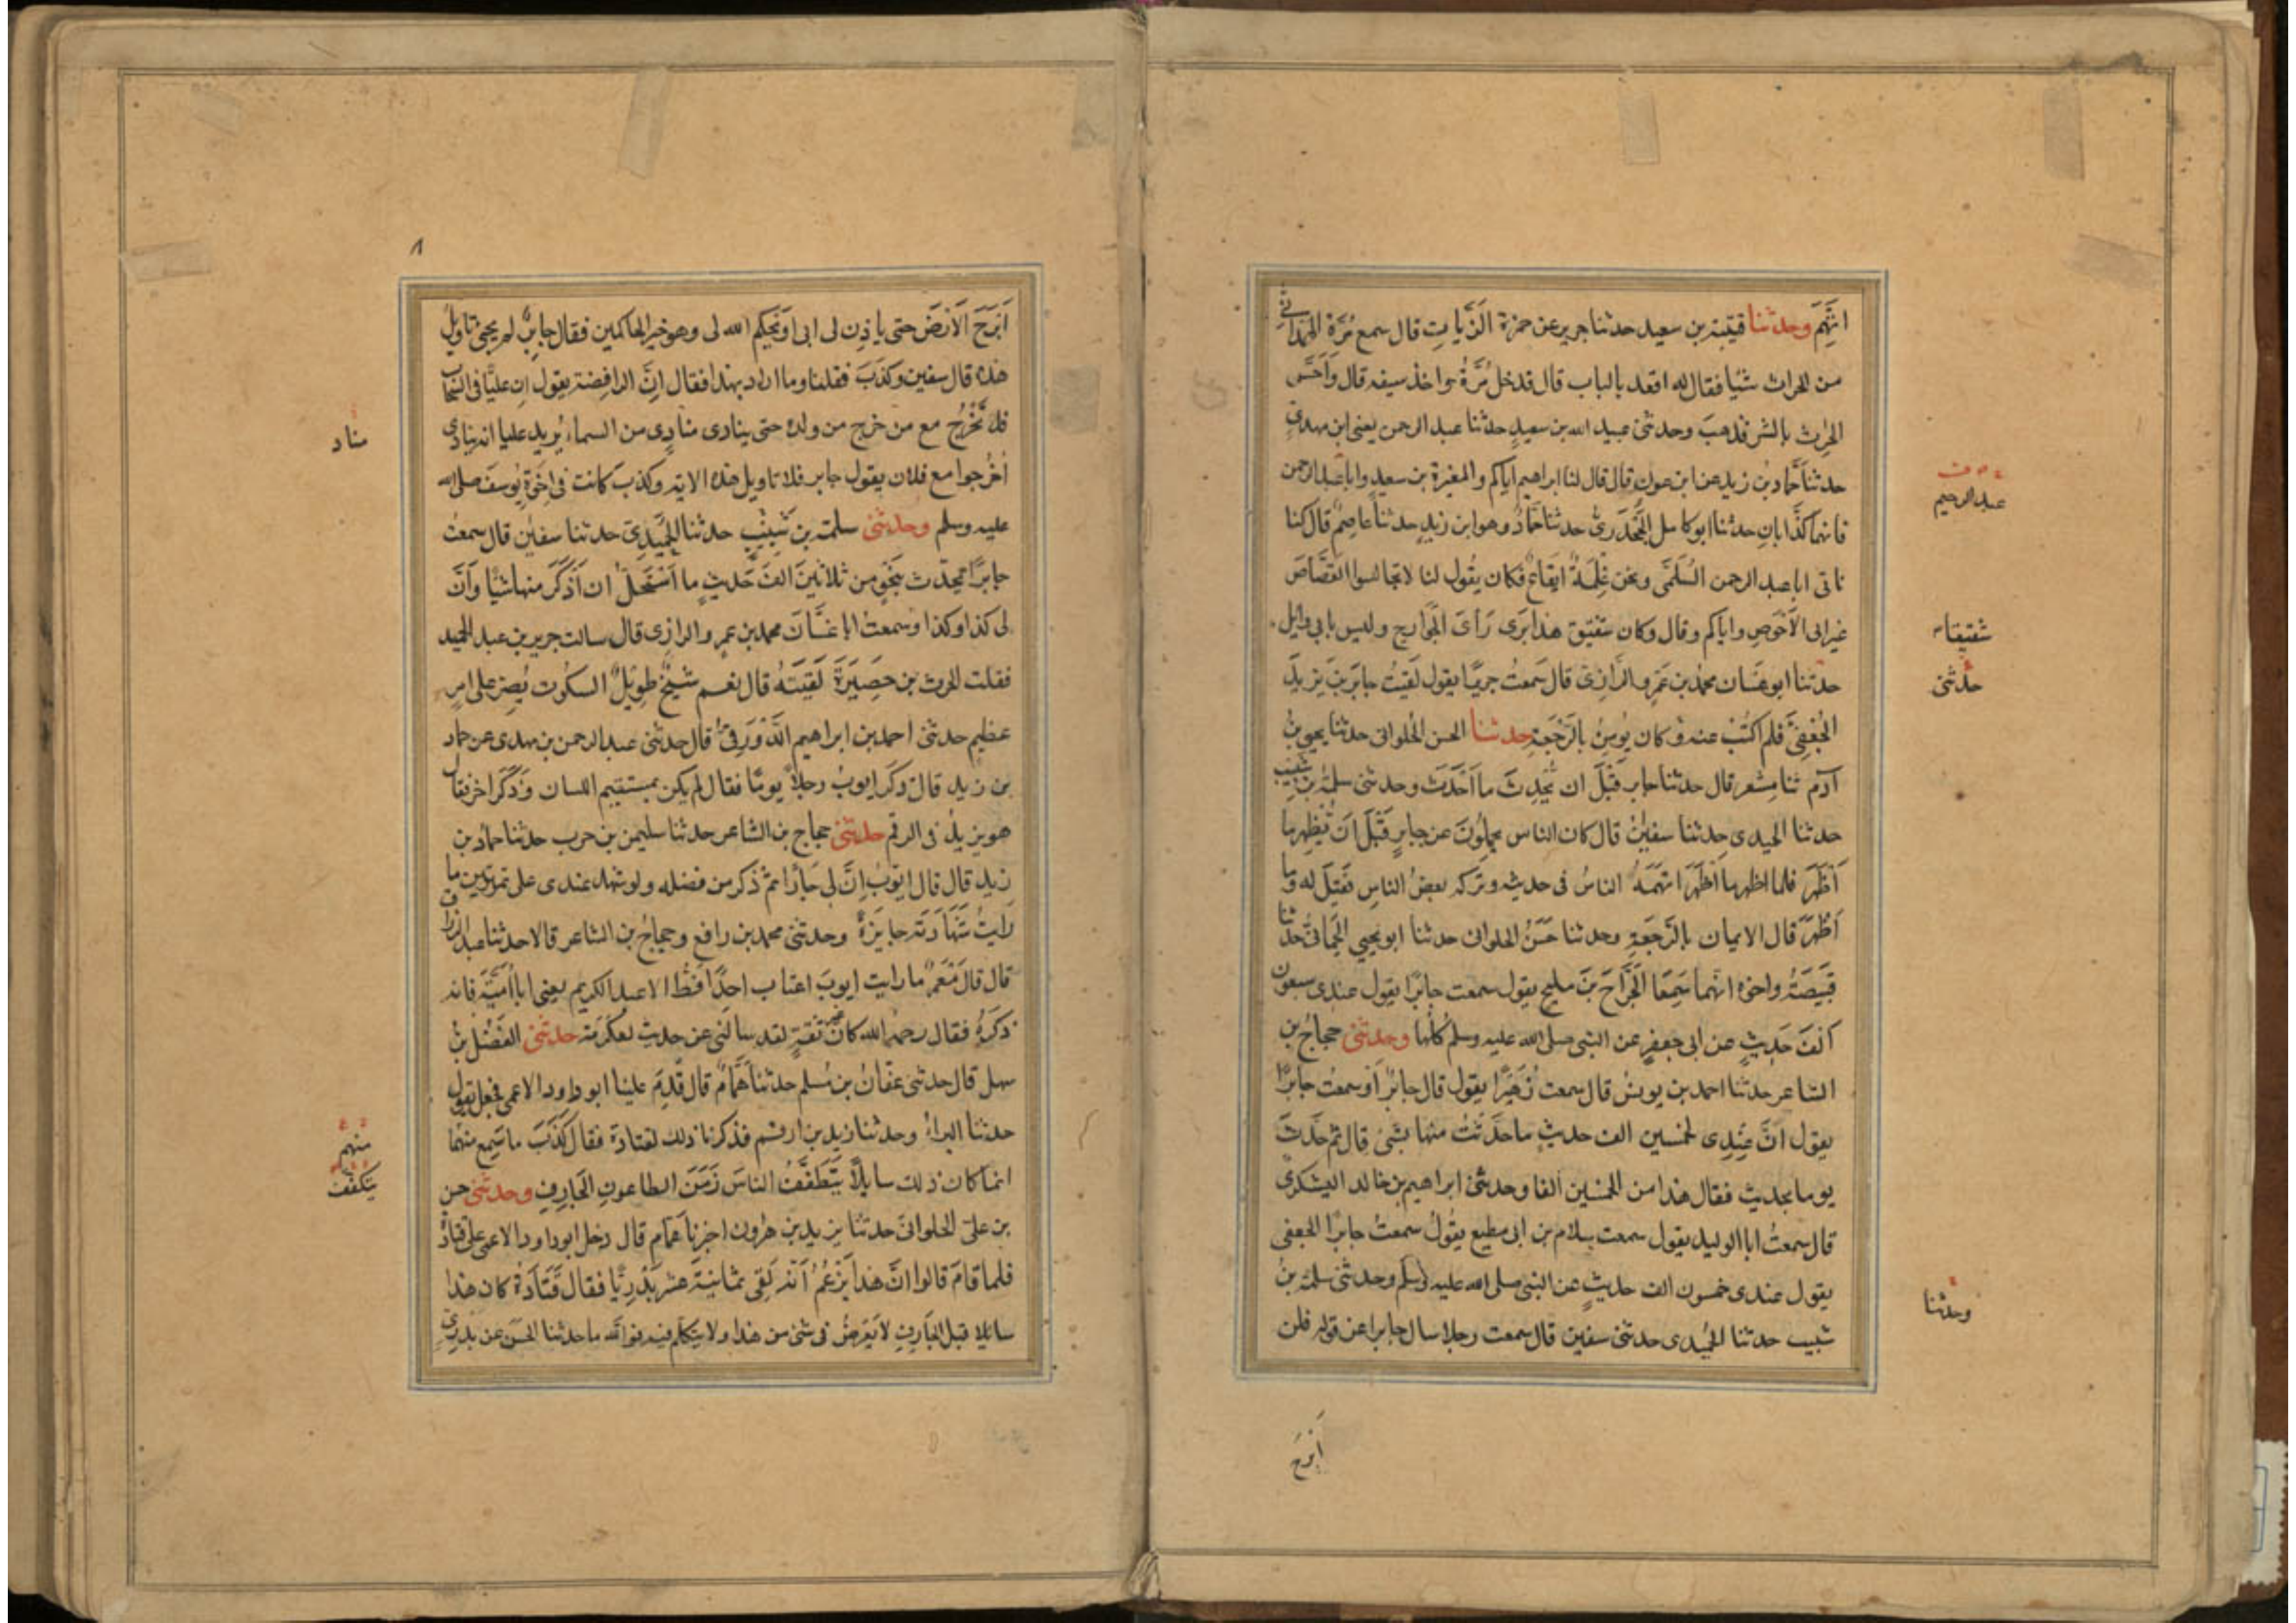 اتهم وحدثنا قتيبة بن سعيد حدثنا جرير عن حمزة الزيات قال سمع مرة الهمداني
من الحرث شيئا فقال له اقعد بالباب قال فدخل مرة واخذ سيفه قال وأحس
الحرث بالشر فذهب وحدثني عبيد الله بن سعيد حدثنا عبد الرحمن يعنى ابن مهدي
حدثنا حماد بن زيد عن ابن عون قال قال لنا ابراهيم اياكم والمغيرة بن سعيد وابا عبد الرحمن
عبد الرحيم
فانهما كذابان حدثنا ابو كامل الجحدري حدثنا حماد وهو ابن زيد حدثنا عاصم قال كنا
ناتى ابا عبد الرحمن السلمي ونحن غلمة ايفاع فكان يقول لنا لا تجالسوا القصاص
غير ابى الاحوص واياكم وقال وكان شقيق هذا يرى رأى الخوارج وليس بابي وايل
شقيقا
حدثنا ابو غسان محمد بن عمرو الرازي قال سمعت جريرا يقول لقيت جابر بن يزيد
حدثنى
الجعفي فلم اكتب عنه وكان يؤمن بالرجعة حدثنا الحسن الحلوانى حدثنا يحيى بن
آدم ثنا مسعر قال حدثنا جابر قبل ان يحدث ما احدث وحدثنى سلمة بن شبيب
حدثنا الحميدى حدثنا سفين قال كان الناس يحملون عن جابر قبل ان يظهر ما
أظهر فلما اظهر ما أظهر اتهمه الناس فى حديثه وتركه بعض الناس فقيل له وما
أظهر قال الايمان بالرجعة وحدثنا حسن الحلوانى حدثنا ابو يحيى الحمانى حدثنا
قبيصة واخوه انهما سمعا الجراح بن مليح يقول سمعت جابرا يقول عندى سبعون
ألف حديث عن ابى جعفر عن النبى صلى الله عليه وسلم كلها وحدثنى حجاج بن
الشاعر حدثنا احمد بن يونس قال سمعت زهيرا يقول قال جابر أو سمعت جابرا
يقول ان عندى لخمسين الف حديث ما حدثت منها بشئ قال ثم حدث
يوما بحديث فقال هذا من الخمسين الفا وحدثنى ابراهيم بن خالد اليشكرى
قال سمعت ابا الوليد يقول سمعت سلام بن ابى مطيع يقول سمعت جابرا الجعفى
يقول عندى خمسون الف حديث عن النبى صلى الله عليه وسلم وحدثنى سلمة بن
وحدثنا
شبيب حدثنا الحميدى حدثنى سفين قال سمعت رجلا سال جابرا عن قوله فلن
أبرح
٨
أبرح الارض حتى ياذن لى ابى او يحكم الله لى وهو خير الحاكمين فقال جابر لم يجئ تاويل
هذه قال سفين وكذب فقلنا وما اراد بهذا فقال ان الرافضة يقول ان عليا فى السحاب
فلا نخرج مع من خرج من ولده حتى ينادى منادى من السماء يريد عليا انه ينادى
مناد
اخرجوا مع فلان يقول جابر فلا تاويل هذه الاية وكذب كانت فى اخوة يوسف صلى الله
عليه وسلم وحدثنى سلمة بن شبيب حدثنا الحميدي حدثنا سفين قال سمعت
جابرا يحدث بنحو من ثلاثين الف حديث ما أستحل ان أذكر منها شيئا وأن
لى كذا وكذا وسمعت ابا غسان محمد بن عمرو الرازى قال سالت جرير بن عبد الحميد
فقلت الحرث بن حصيرة لقيته قال نعم شيخ طويل السكوت يصر على امر
عظيم حدثنى احمد بن ابراهيم الدورقى قال حدثنى عبد الرحمن بن مهدى عن حماد
بن زيد قال ذكر ايوب رجلا يوما فقال لم يكن بمستقيم اللسان وذكر اخر فقال
هو يزيد فى الرقم حدثنى حجاج بن الشاعر حدثنا سليمن بن حرب حدثنا حماد بن
زيد قال قال ايوب ان لى جارا ثم ذكر من فضله ولو شهد عندى على تمرتين ما
رايت شهادته جايزة وحدثنى محمد بن رافع وحجاج بن الشاعر قالا حدثنا عبد الرزاق
قال قال معمر ما رايت ايوب اغتاب احدا قط الا عبد الكريم يعنى ابا أمية فانه
ذكره فقال رحمه الله كان غير ثقة لقد سالنى عن حديث لعكرمة حدثنى الفضل بن
سهل قال حدثنى عفان بن مسلم حدثنا همام قال قدم علينا ابو داود الاعمى فجعل يقول
حدثنا البراء وحدثنا زيد بن ارقم فذكرنا ذلك لقتادة فقال كذب ما سمع منهما
منهم
انما كان ذلك سايلا يتطفف الناس زمن الطاعون الجارف وحدثنى حسن
يتكفف
بن على الحلوانى حدثنا يزيد بن هرون اخبرنا همام قال دخل ابو داود الاعمى على قتادة
فلما قام قالوا ان هذا يزعم أنه لقى ثمانية عشر بدريا فقال قتادة كان هذا
سائلا قبل الجارف لا يعرض فى شئ من هذا ولا يتكلم فيه فوالله ما حدثنا الحسن عن بدرى